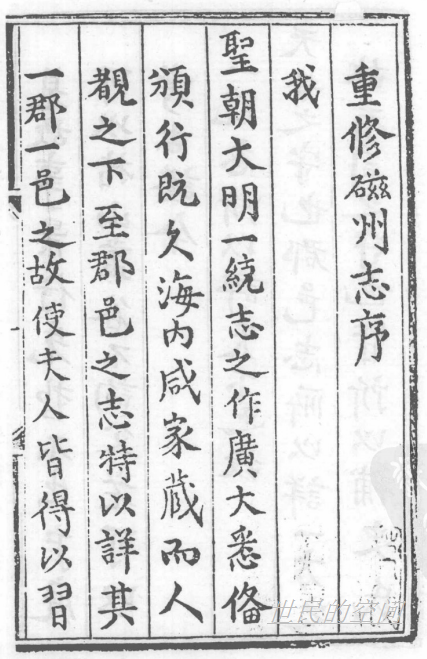 重修磁州志序
我
聖朝大明一統志之作廣大悉俻
頒行既久海内咸家藏而人
覩之下至郡邑之志特以詳其
一郡一邑之故使夫人皆得以習
世民的空间